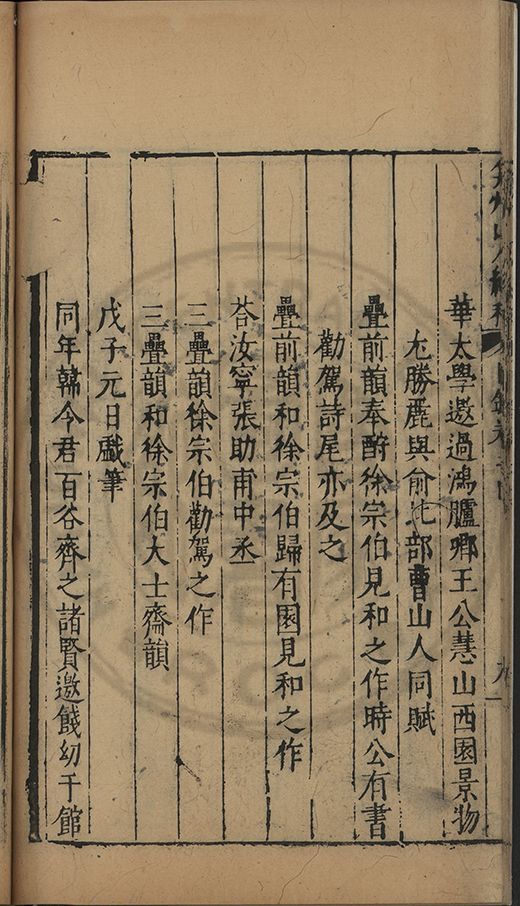 華太學邀過鴻臚卿王公慧山西園景物
尤勝麗與俞比部曹山人同賦
疊前韻奉酧徐宗伯見和之作時公有書
勸駕詩尾亦及之
疊前韻和徐宗伯歸有園見和之作
荅汝寧張助甫中丞
三疊韻徐宗伯勸駕之作
三疊韻和徐宗伯大士齋韻
戊子元日戲筆
同年韓令君百谷齊之諸賢邀餞幻千館